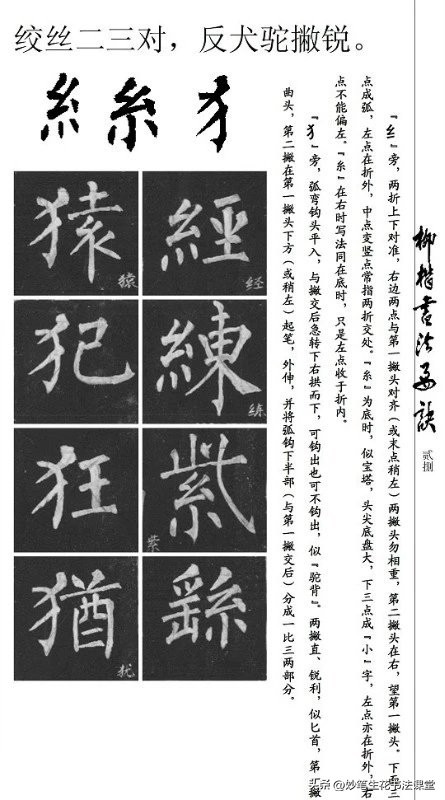 绞丝二三对，反犬驼撇锐。
糹 糸 犭
猿 猿 經 经
犯 練 练
狂 紫 紫
猶 犹 繇
柳楷书法要诀
贰捌
『纟』旁，两折上下对准，右边两点与第一撇头对齐（或末点稍左）两撇头勿相重，第二撇头在右，望第一撇头。下面三
点成弧，左点在折外，中点变竖点常指两折交处。『糸』为底时，似宝塔，头尖底盘大，下三点成『小』字，左点亦在折外，右
点不能偏左。『糸』在右时写法同在底时，只是左点收于折内。
『犭』旁，弧弯钩头平入，与撇交后急转下右拱而下，可钩出也可不钩出，似『驼背』。两撇直、锐利，似匕首，第一撇
曲头，第二撇在第一撇头下方（或稍左）起笔，外伸，并将弧钩下半部（与第一撇交后）分成一比三两部分。
头条 @妙笔生花书法课堂